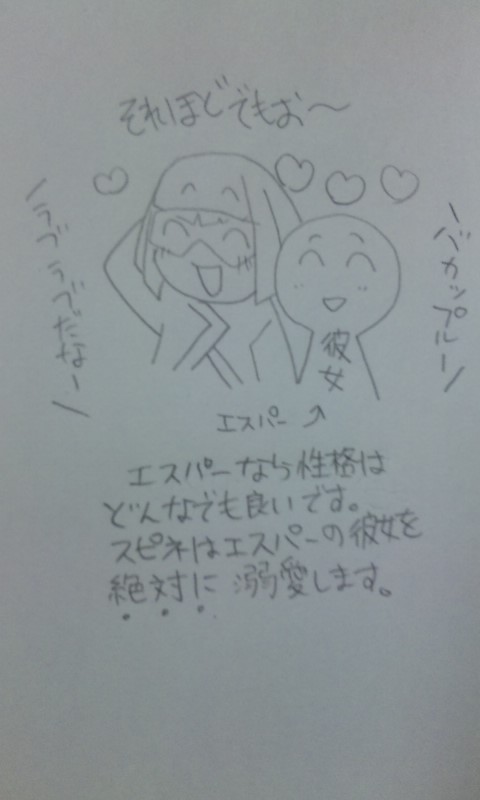 それほどでもお〜
\ラブラブだなー/
\バカップルー/
彼女
エスパー↗
エスパーなら性格は
どんなでも良いです。
スピネはエスパーの彼女を
絶対に溺愛します。